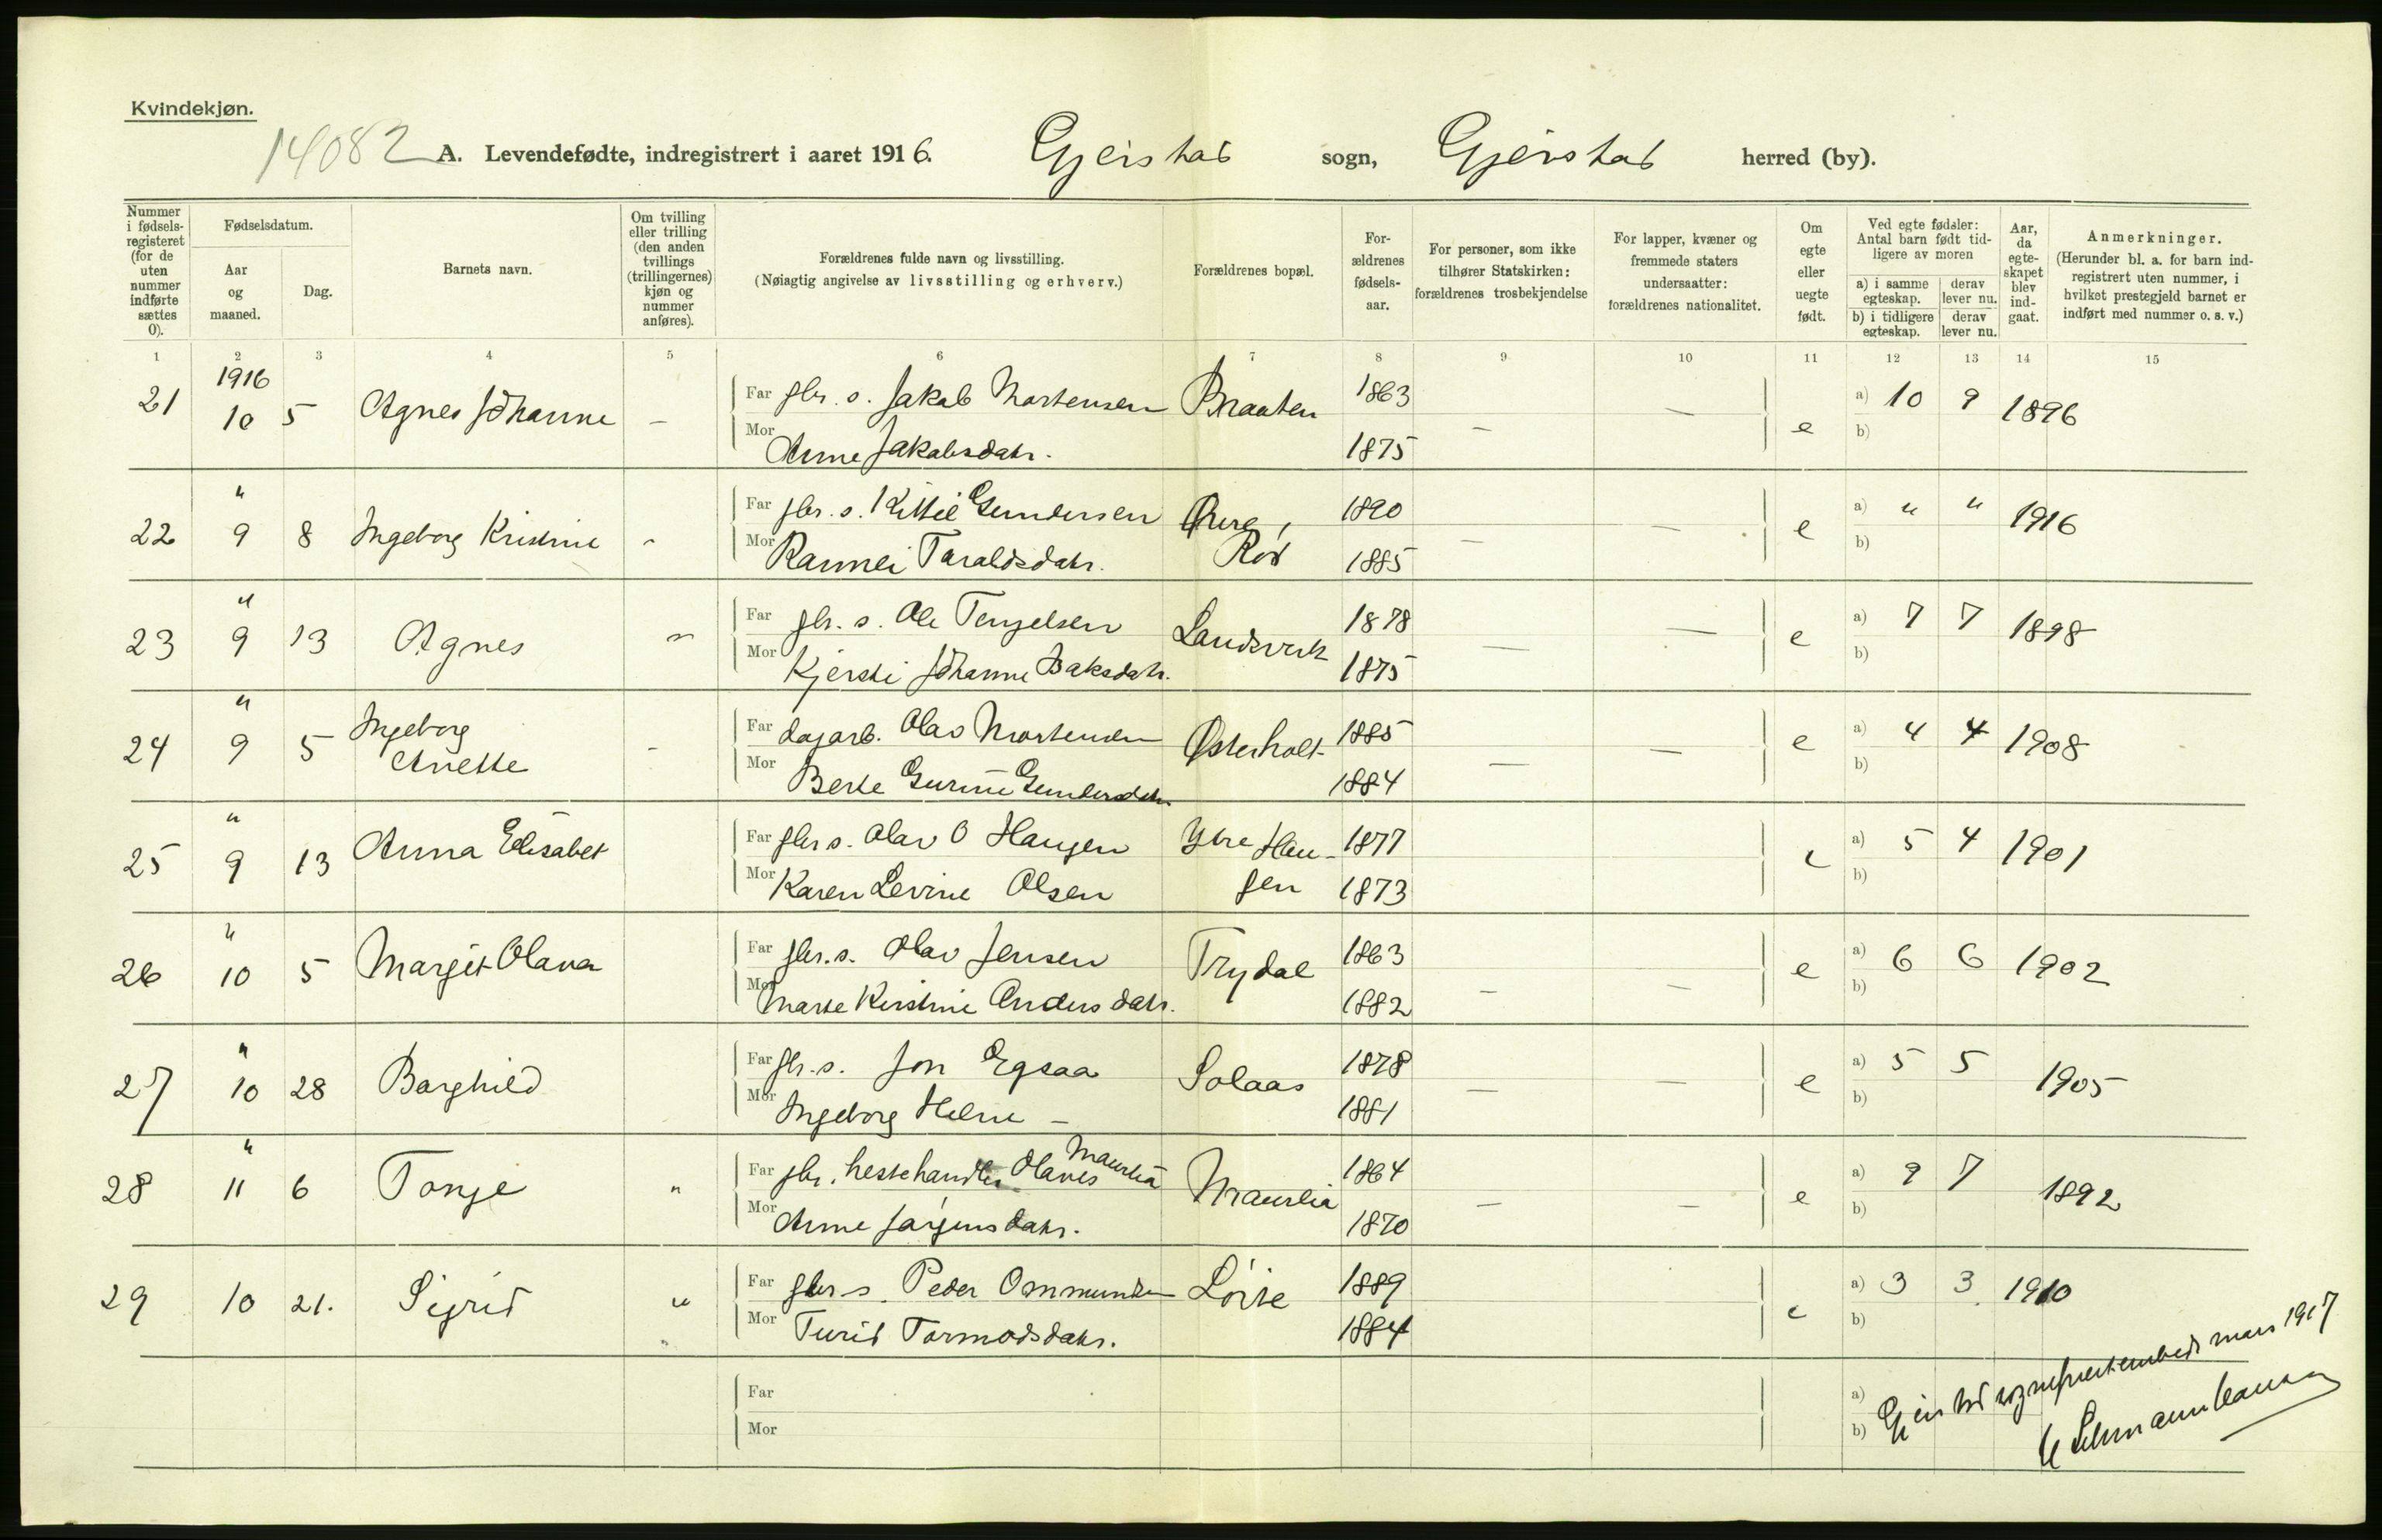 Kvindekjøn.
14082 A. Levendefødte, indregistrert i aaret 1916. Gjerstad sogn, Gjerstad herred (by).
Nummer i fødselsregisteret (for de uten nummer indførte sættes 0).
Fødselsdatum.
Aar og maaned.
Dag.
Barnets navn.
Om tvilling eller trilling (den anden tvillings (trillingernes) kjøn og nummer anføres).
Forældrenes fulde navn og livsstilling.
(Nøiagtig angivelse av livsstilling og erhverv.)
Forældrenes bopæl.
Forældrenes fødselsaar.
For personer, som ikke tilhører Statskirken: forældrenes trosbekjendelse
For lapper, kvæner og fremmede staters undersaatter: forældrenes nationalitet.
Om egte eller uegte født.
Ved egte fødsler: Antal barn født tidligere av moren
a) i samme egteskap. derav lever nu.
b) i tidligere egteskap. derav lever nu.
Aar, da egteskapet blev indgaat.
Anmerkninger.
(Herunder bl. a. for barn indregistrert uten nummer, i hvilket prestegjeld barnet er indført med nummer o. s. v.)
1 2 3 4 5 6 7 8 9 10 11 12 13 14 15
1916
21 10 5 Agnes Johanne – Far gbr. s. Jakob Mortensen Braaten 1863 – – e a) 10 9 1896
Mor Anne Jakobsdatr. 1875 b)
22 " 9 8 Ingeborg Kristine " Far gbr. s. Kittil Gundersen Øvre 1890 – – e a) " " 1916
Mor Rannei Taraldsdatr. Rød 1885 b)
23 " 9 13 Agnes " Far gbr. s. Ole Tengelsen Landsverk 1878 – – e a) 7 7 1898
Mor Kjersti Johanne Isaksdatr. 1875 b)
24 " 9 5 Ingeborg Anette – Far dagarb. Olav Mortensen Østerholt 1885 – – e a) 4 4 1908
Mor Berte Gurine Gundersdatr. 1884 b)
25 " 9 13 Anna Elisabet Far gbr s. Olav O Haugen Ytre Hau- 1877 e a) 5 4 1901
Mor Karen Levine Olsen gen 1873 b)
26 " 10 5 Margit Olava Far gbr. s. Olav Jensen Trydal 1863 – – e a) 6 6 1902
Mor Marte Kirstine Andersdatr. 1882 b)
27 " 10 28 Borghild Far gbr. s. Jon Egsaa Solaas 1878 – – e a) 5 5 1905
Mor Ingeborg Helene – 1881 b)
28 " 11 6 Tonje " Far gbr. hestehandler Olaves Maurlia Maurlia 1864 – – e a) 9 7 1892
Mor Anne Jørgensdatr. 1870 b)
29 10 21. Sigrid " Far gbr s. Peder Ommundsen Løite 1889 e a) 3 3 1910
Mor Turid Tormodsdatr. 1884 b)
Far a)
Mor b)
Gjerstad sogneprestembede mars 1917